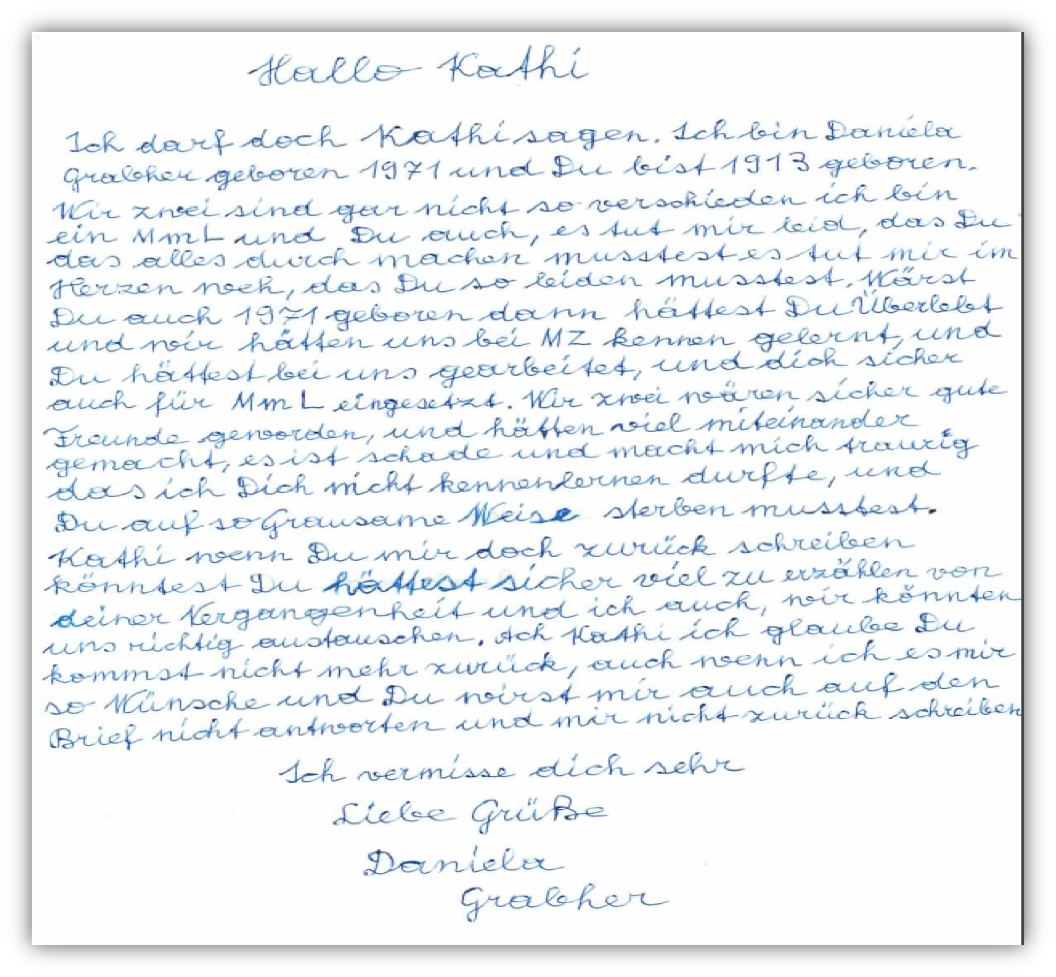 Hallo Kathi
Ich darf doch Kathi sagen. Ich bin Daniela
Grabher geboren 1971 und Du bist 1913 geboren.
Wir zwei sind gar nicht so verschieden ich bin
ein MmL und Du auch, es tut mir leid, das Du
das alles durch machen musstest es tut mir im
Herzen weh, das Du so leiden musstest. Wärst
Du auch 1971 geboren dann hättest Du Überlebt
und wir hätten uns bei MZ kennen gelernt, und
Du hättest bei uns gearbeitet, und dich sicher
auch für MmL eingesetzt. Wir zwei wären sicher gute
Freunde geworden, und hätten viel miteinander
gemacht, es ist schade und macht mich traurig
das ich Dich nicht kennenlernen durfte, und
Du auf so Grausame Weise sterben musstest.
Kathi wenn Du mir doch zurück schreiben
könntest Du hättest sicher viel zu erzählen von
deiner Vergangenheit und ich auch, wir könnten
uns richtig austauschen. Ach Kathi ich glaube Du
kommst nicht mehr zurück, auch wenn ich es mir
so Wünsche und Du wirst mir auch auf den
Brief nicht antworten und mir nicht zurück schreiben
Ich vermisse dich sehr
Liebe Grüße
Daniela
Grabher